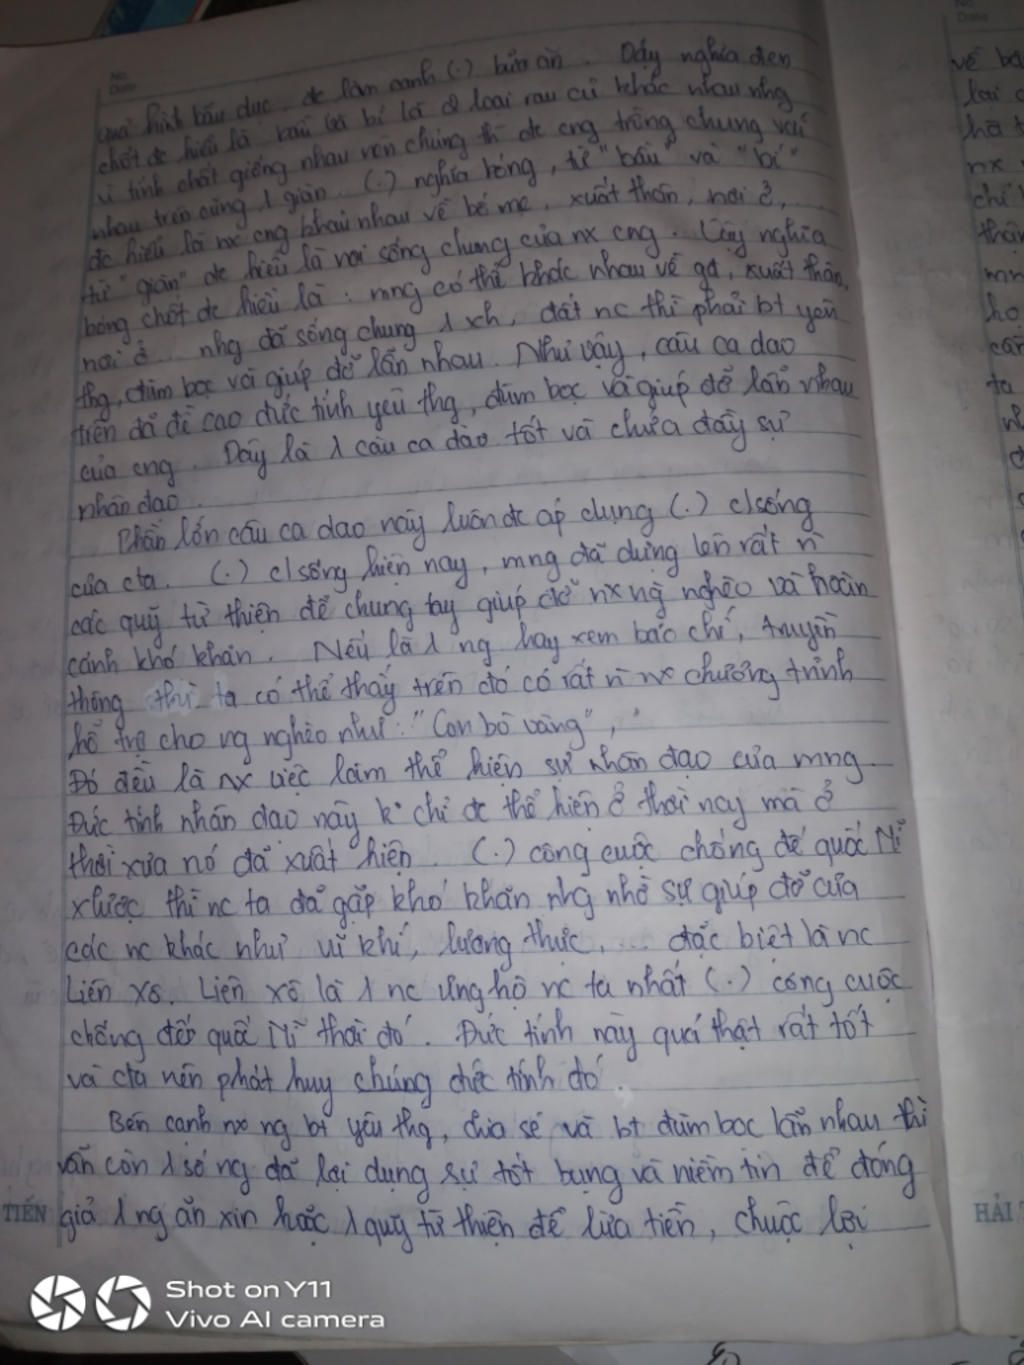 No.
Date
quả hình bầu dục, đc làm canh (.) bữa ăn. Dãy nghĩa đen
chốt đc hiểu là bầu và bí là 2 loại rau củ khác nhau nhg
vì tính chất giống nhau nên chúng thì đc cng trồng chung với
nhau trên cùng 1 giàn. (.) nghĩa bóng, từ "bầu" và "bí"
đc hiểu là nx cng khau nhau về bố mẹ, xuất thân, nơi ở,
từ "giàn" đc hiểu là nơi sống chung của nx cng. Lấy nghĩa
bóng chốt đc hiểu là: mng có thể khác nhau về gđ, xuất thân,
nơi ở... nhg đã sống chung 1 xh, đất nc thì phải bt yêu
thg, đùm bọc và giúp đỡ lẫn nhau. Như vậy, câu ca dao
trên đã đề cao đức tính yêu thg, đùm bọc và giúp đỡ lẫn nhau
của cng. Đây là 1 câu ca dao tốt và chứa đầy sự
nhân đạo.
Phần lớn câu ca dao này luôn đc áp dụng (.) c/sống
của cta. (.) c/sống hiện nay, mng đã dựng lên rất n`
các quỹ từ thiện để chung tay giúp đỡ nx ng nghèo và hoàn
cảnh khó khăn. Nếu là 1 ng hay xem báo chí, truyền
thông thì ta có thể thấy trên đó có rất n` nx chương trình
hỗ trợ cho ng nghèo như: "Con bò vàng",
Đó đều là nx việc làm thể hiện sự nhân đạo của mng.
Đức tính nhân đạo này k° chỉ đc thể hiện ở thời nay mà ở
thời xưa nó đã xuất hiện. (.) công cuộc chống đế quốc Mĩ
xlược thì nc ta đã gặp khó khăn nhg nhờ sự giúp đỡ của
các nc khác như vũ khí, lương thực,... đặc biệt là nc
Liên Xô. Liên xô là 1 nc ủng hộ nc ta nhất (.) công cuộc
chống đế quốc Mĩ thời đó. Đức tính này quả thật rất tốt
và cta nên phát huy chúng đức tính đó.
Bên cạnh nx ng bt yêu thg, chia sẻ và bt đùm bọc lẫn nhau thì
vẫn còn 1 số ng đã lợi dụng sự tốt bụng và niềm tin để đóng
giả 1 ng ăn xin hoặc 1 quỹ từ thiện để lừa tiền, chuộc lợi
TIẾN
No
Date
về bả
lại c
hã t
nx
chí
thân
mn
ho
cản
ta
HẢI
Shot on Y11
Vivo AI camera